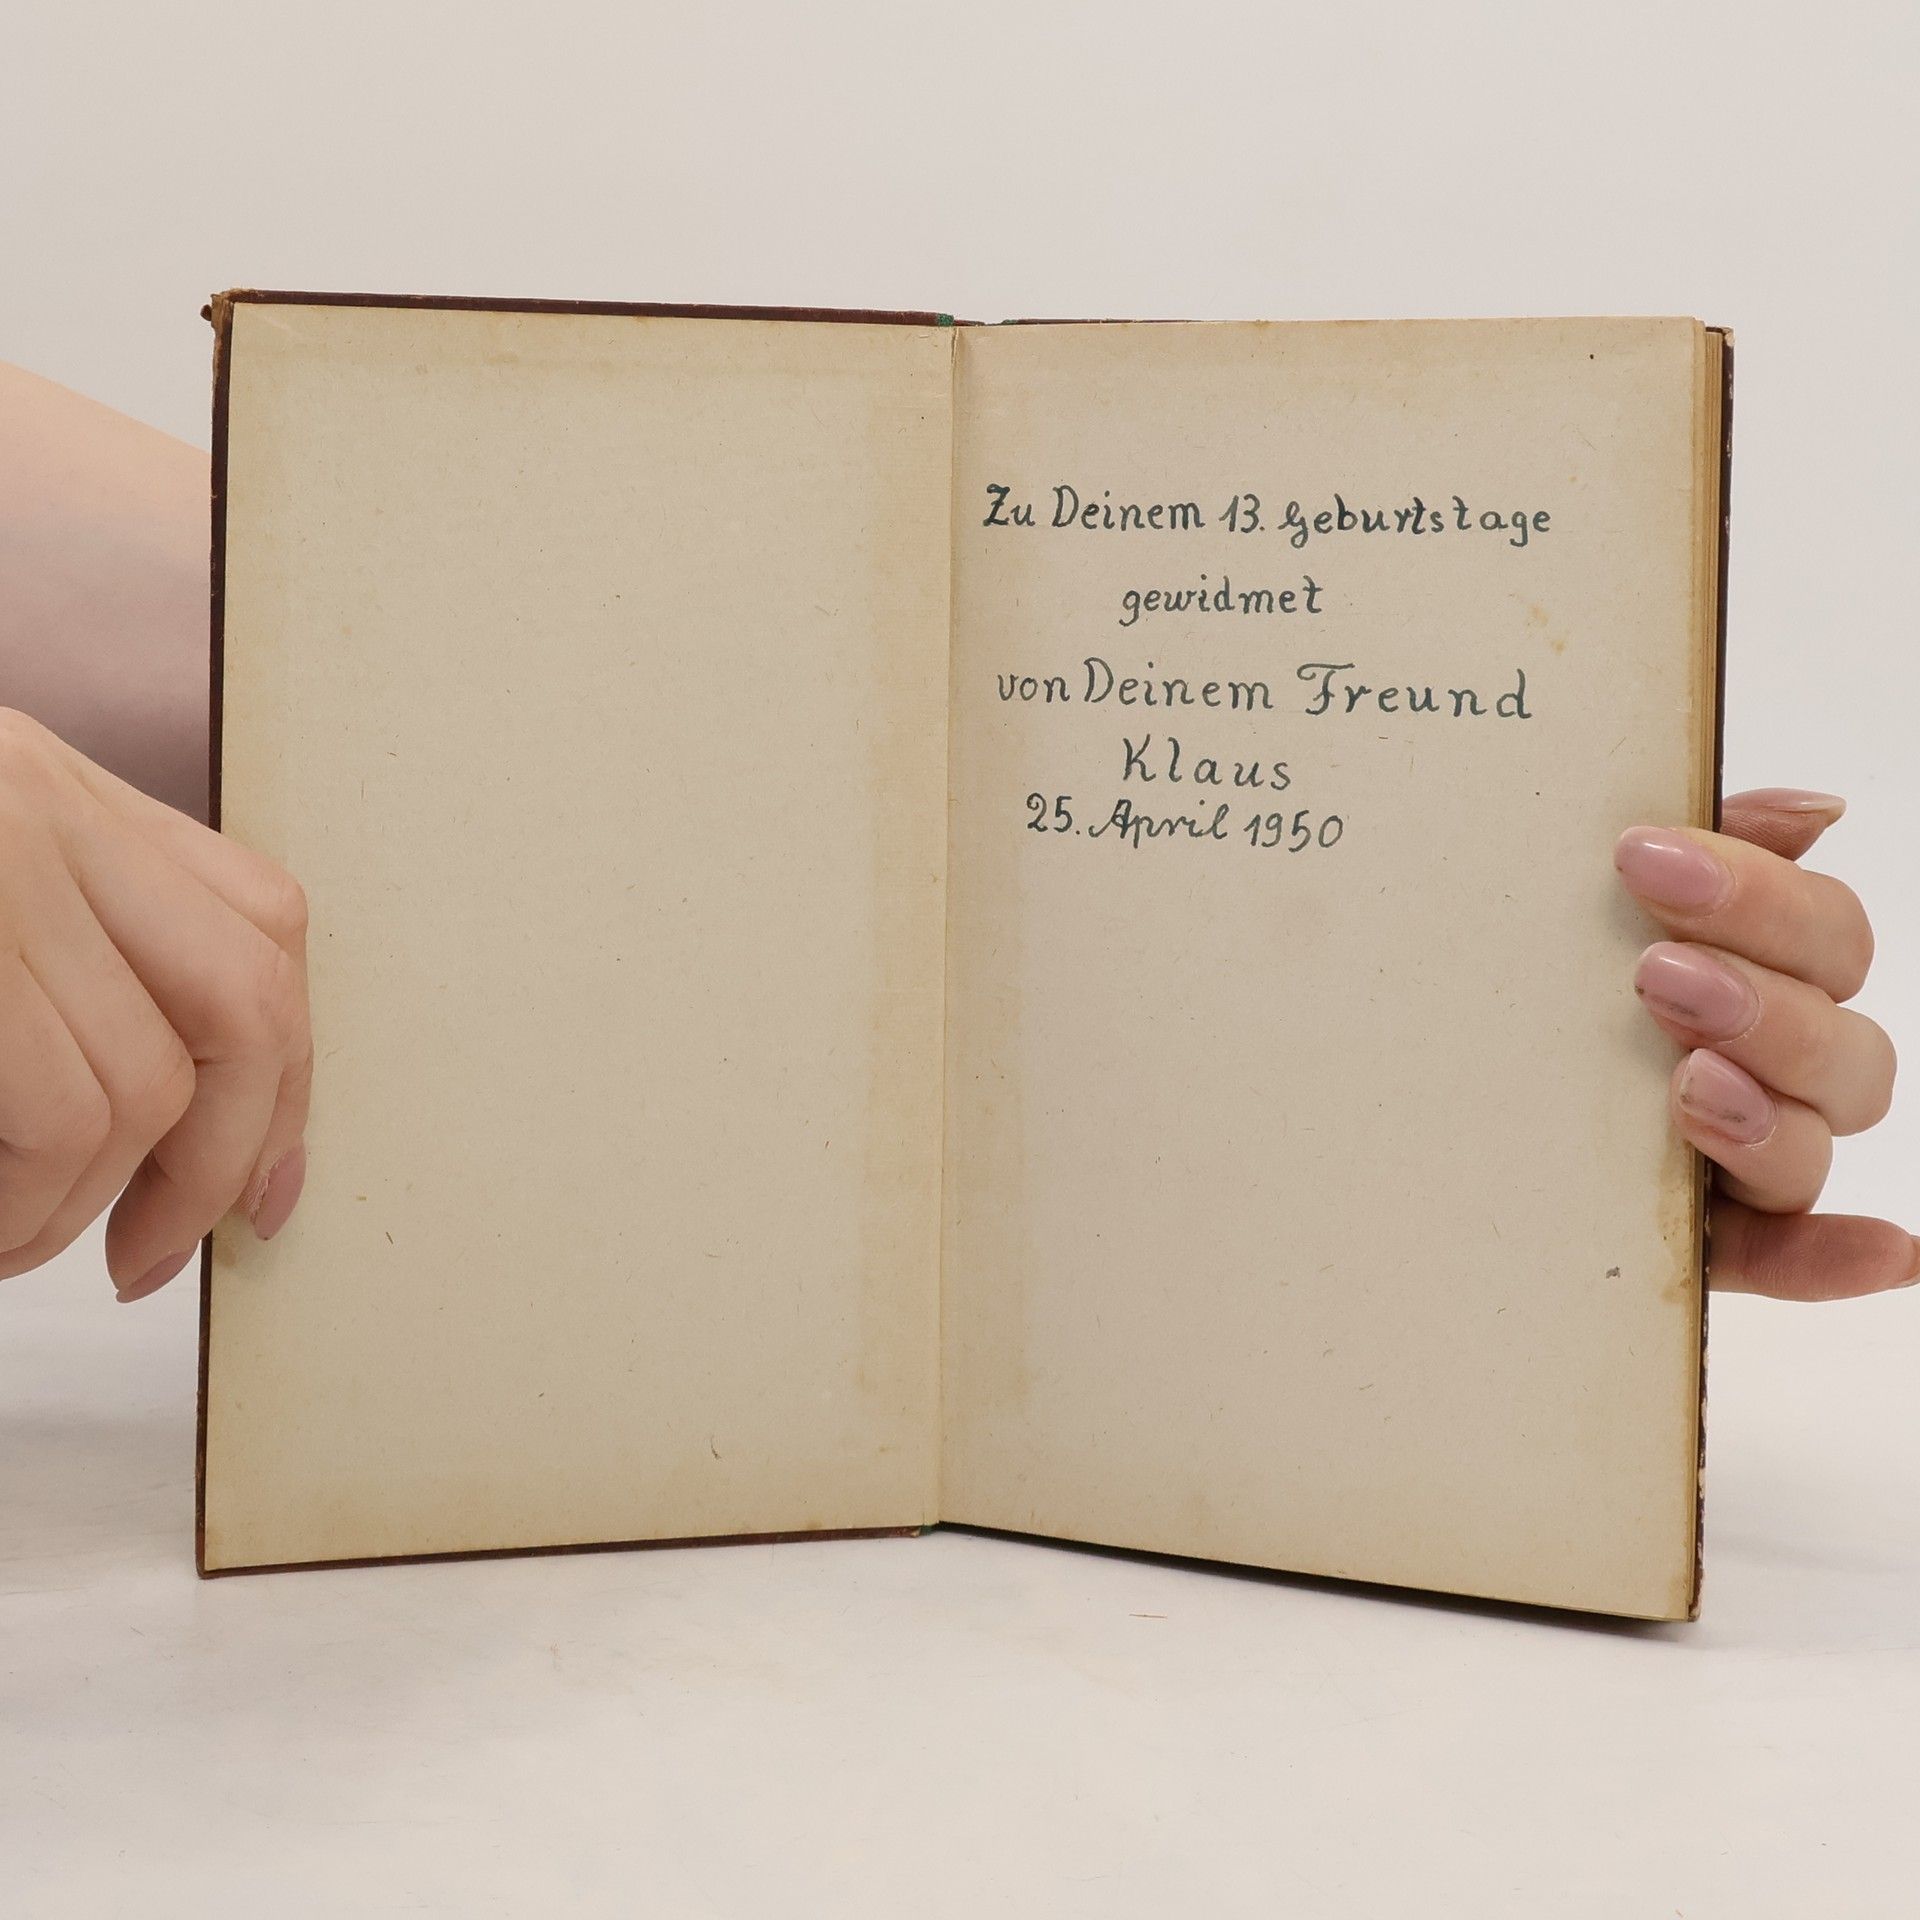 Zu Deinem 13. Geburtstage
gewidmet
von Deinem Freund
Klaus
25. April 1950